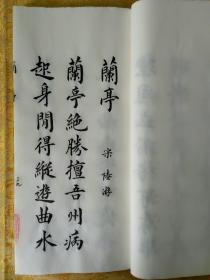 蘭亭
宋 陸游
蘭亭絶勝擅吾州病
起身閒得縱遊曲水